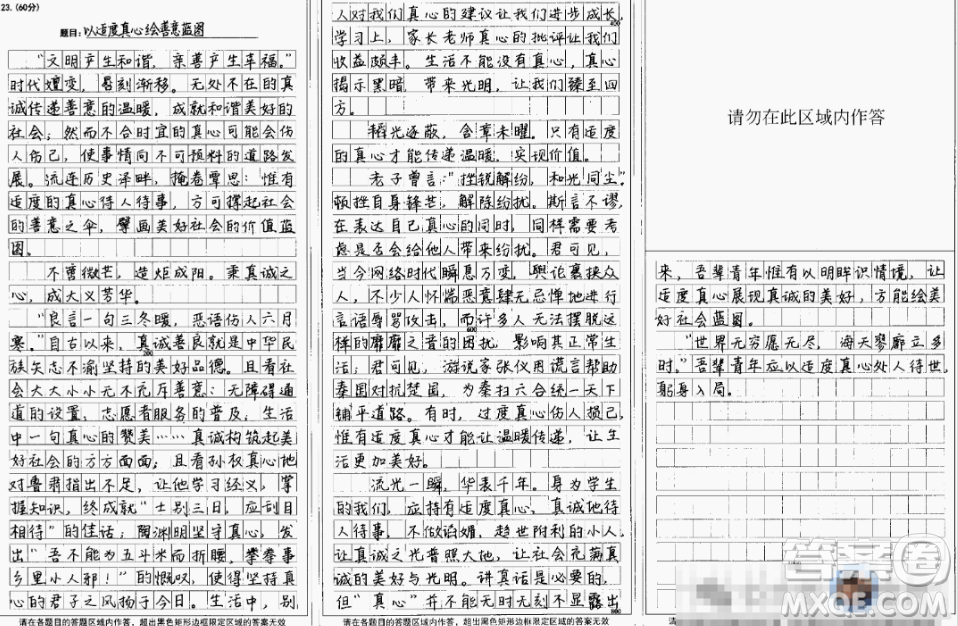 23.(60分)
题目：以适度真心绘善意蓝图
“文明产生和谐，亲善产生幸福。”
时代嬗变，晷刻渐移。无处不在的真
诚传递善意的温暖，成就和谐美好的
社会；然而不合时宜的真心可能会伤
人伤己，使事情向不可预料的道路发
展。流连历史泽畔，掩卷覃思：惟有
适度的真心待人待事，方可撑起社会
的善意之伞，擘画美好社会的价值蓝
图。
不啻微芒，造炬成阳。秉真诚之
心，成大义芳华。
“良言一句三冬暖，恶语伤人六月
寒。”自古以来，真诚善良就是中华民
族矢志不渝坚持的美好品德。且看社
会大大小小无不充斥善意：无障碍通
道的设置，志愿者服务的普及，生活
中一句真心的赞美……真诚构筑起美
好社会的方方面面；且看孙权真心地
对鲁肃指出不足，让他学习经义，掌
握知识，终成就“士别三日，应刮目
相待”的佳话；陶渊明坚守真心，发
出“吾不能为五斗米而折腰，拳拳事
乡里小人邪！”的慨叹，使得坚持真
心的君子之风扬于今日。生活中，别
请在各题目的答题区域内作答，超出黑色矩形边框限定区域的答案无效
人对我们真心的建议让我们进步成长，
学习上，家长老师真心的批评让我们
收益颇丰。生活不能没有真心，真心
揭示黑暗，带来光明，让我们臻至四
方。
韬光逐薮，含章未曜。只有适度
的真心才能传递温暖，实现价值。
老子曾言：“挫锐解纷，和光同尘”。
顿挫自身锋芒，解除纷扰。斯言不谬，
在表达自己真心的同时，同样需要考
虑是否会给他人带来纷扰。君可见，
当今网络时代瞬息万变，舆论裹挟众
人，不少人怀惴恶意肆无忌惮地进行
言语辱骂攻击，而许多人无法摆脱这
样的靡靡之音的困扰，影响其正常生
活；君可见，游说家张仪用谎言帮助
秦国对抗楚国，为秦扫六合统一天下
铺平道路。有时，过度真心伤人损己，
惟有适度真心才能让温暖传递，让生
活更加美好。
流光一瞬，华表千年。身为学生
的我们，应持有适度真心，真诚地待
人待事，不做谄媚，趋世附利的小人，
让真诚之光普照大地，让社会充满真
诚的美好与光明。讲真话是必要的，
但“真心”并不能无时无刻不显露出
请在各题目的答题区域内作答，超出黑色矩形边框限定区域的答案无效
请勿在此区域内作答
来，吾辈青年惟有以明眸识情境，让
适度真心展现真诚的美好，方能绘美
好社会蓝图。
“世界无穷愿无尽，海天寥廓立多
时。”吾辈青年应以适度真心处人待世，
躬身入局。
请
答案圈
MXQE.COM